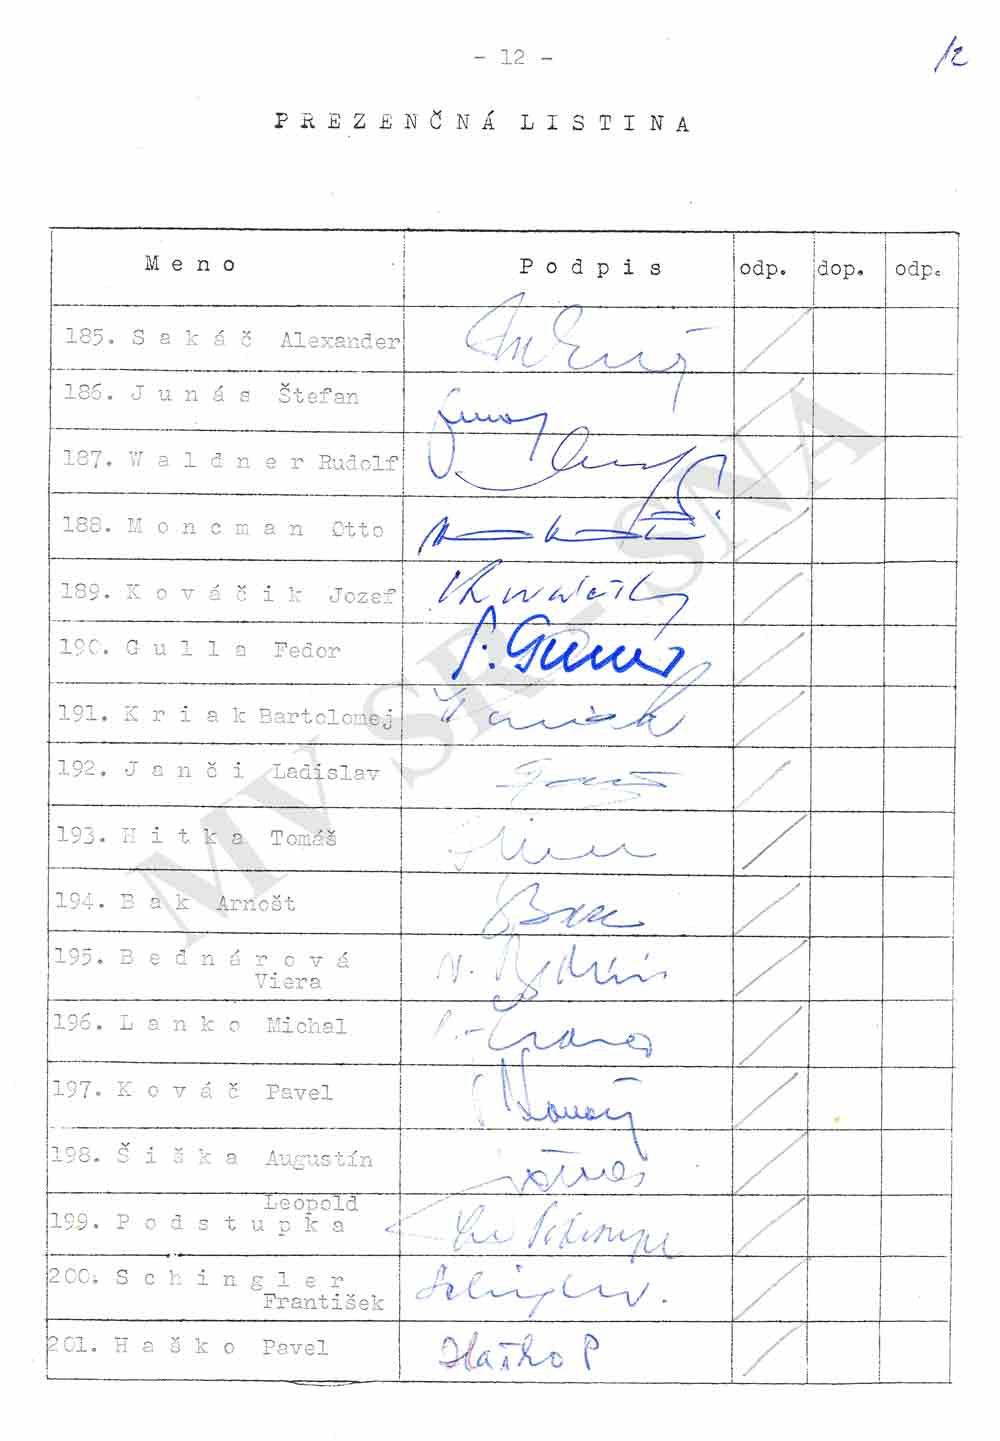 - 12 -
12
PREZENČNÁ LISTINA
Meno Podpis odp. dop. odp.
185. Sakáč Alexander
186. Junás Štefan
187. Waldner Rudolf
188. Moncman Otto
189. Kováčik Jozef
190. Gulla Fedor
191. Kriak Bartolomej
192. Janči Ladislav
193. Hitka Tomáš
194. Bak Arnošt
195. Bednárová
Viera
196. Lanko Michal
197. Kováč Pavel
198. Šiška Augustín
Leopold
199. Podstupka
200. Schingler
František
201. Haško Pavel Haško P
MV SR - SNA